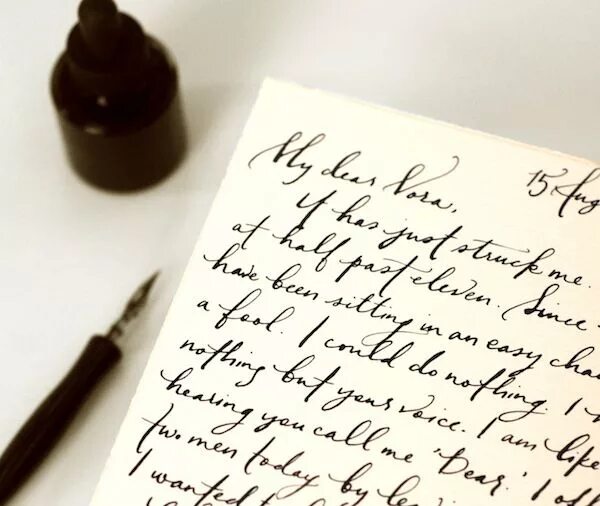 15 Aug
My dear Nora,
It has just struck me.
at half past eleven. Since
have been sitting in an easy cha
a fool. I could do nothing. I
nothing but your voice. I am like
hearing you call me 'Dear.' I off
two men today by le
I wanted t